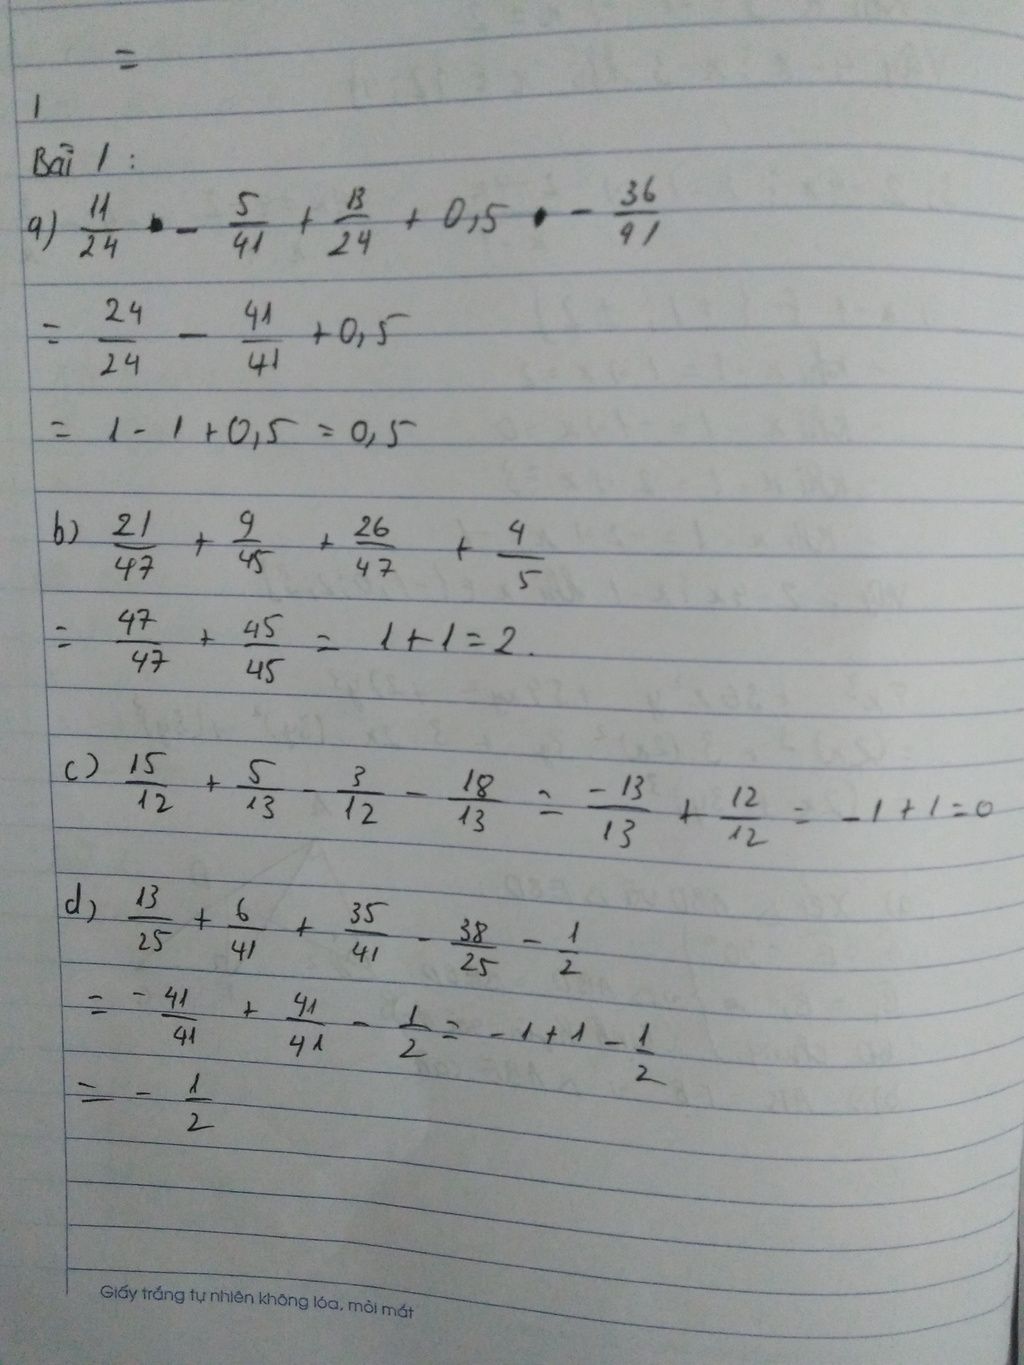 =
1
Bài 1 :
a) 11/24 - 5/41 + 13/24 + 0,5 - 36/41
= 24/24 - 41/41 + 0,5
= 1 - 1 + 0,5 = 0,5
b) 21/47 + 9/45 + 26/47 + 4/5
= 47/47 + 45/45 = 1 + 1 = 2.
c) 15/12 + 5/13 - 3/12 - 18/13 = -13/13 + 12/12 = -1 + 1 = 0
d) 13/25 + 6/41 + 35/41 - 38/25 - 1/2
= -41/41 + 41/41 - 1/2 = -1 + 1 - 1/2
= - 1/2
Giấy trắng tự nhiên không lóa, mỏi mắt